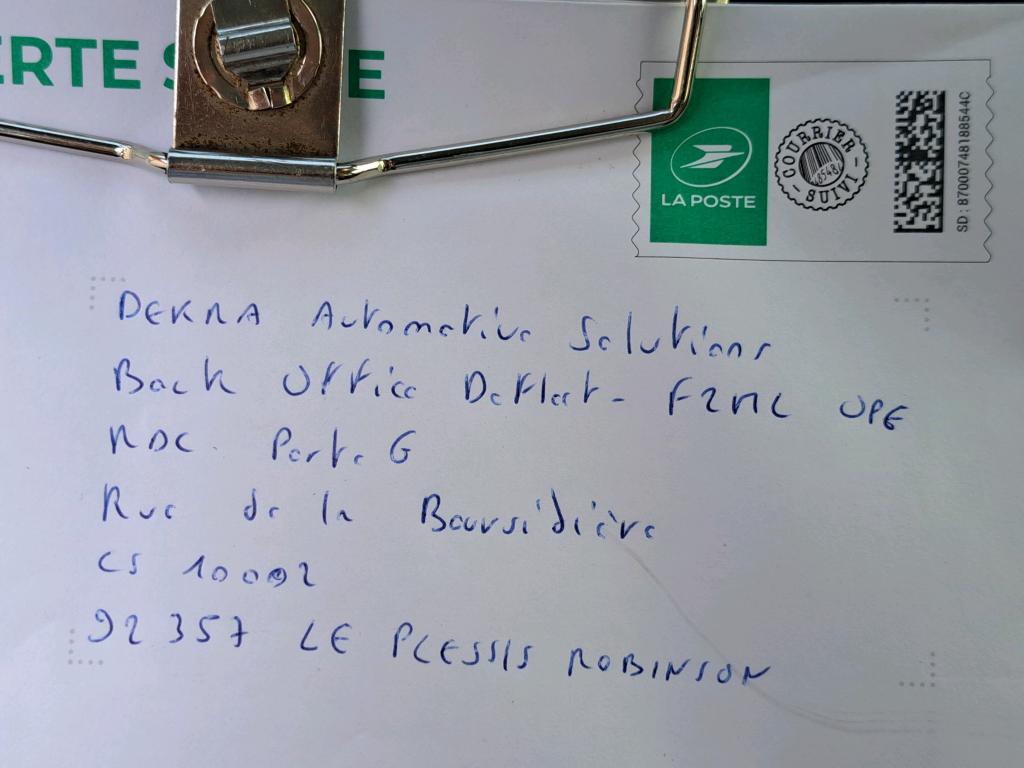 ERTE S
E
LA POSTE
COURRIER
SUIVI
SD : 87000748188544C
DEKRA Automotive Solutions
Back Office Deflect - F2ML OPE
RDC Porte G
Rue de la Boursidière
CS 10002
92357 LE PLESSIS ROBINSON